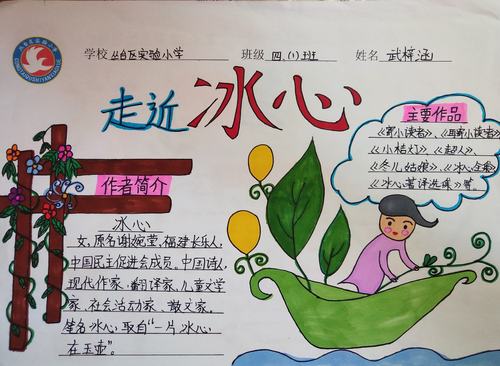 学校 丛台区实验小学 班级 四、(1)班 姓名 武梓涵
走近冰心
主要作品
《寄小读者》、《再寄小读者》
《小桔灯》、《超人》、
《冬儿姑娘》、《冰心全集》
《冰心著译选集》等。
作者简介
冰心
女,原名谢婉莹,福建长乐人,
中国民主促进会成员。中国诗人,
现代作家、翻译家、儿童文学
家、社会活动家、散文家。
笔名冰心,取自“一片冰心
在玉壶”。